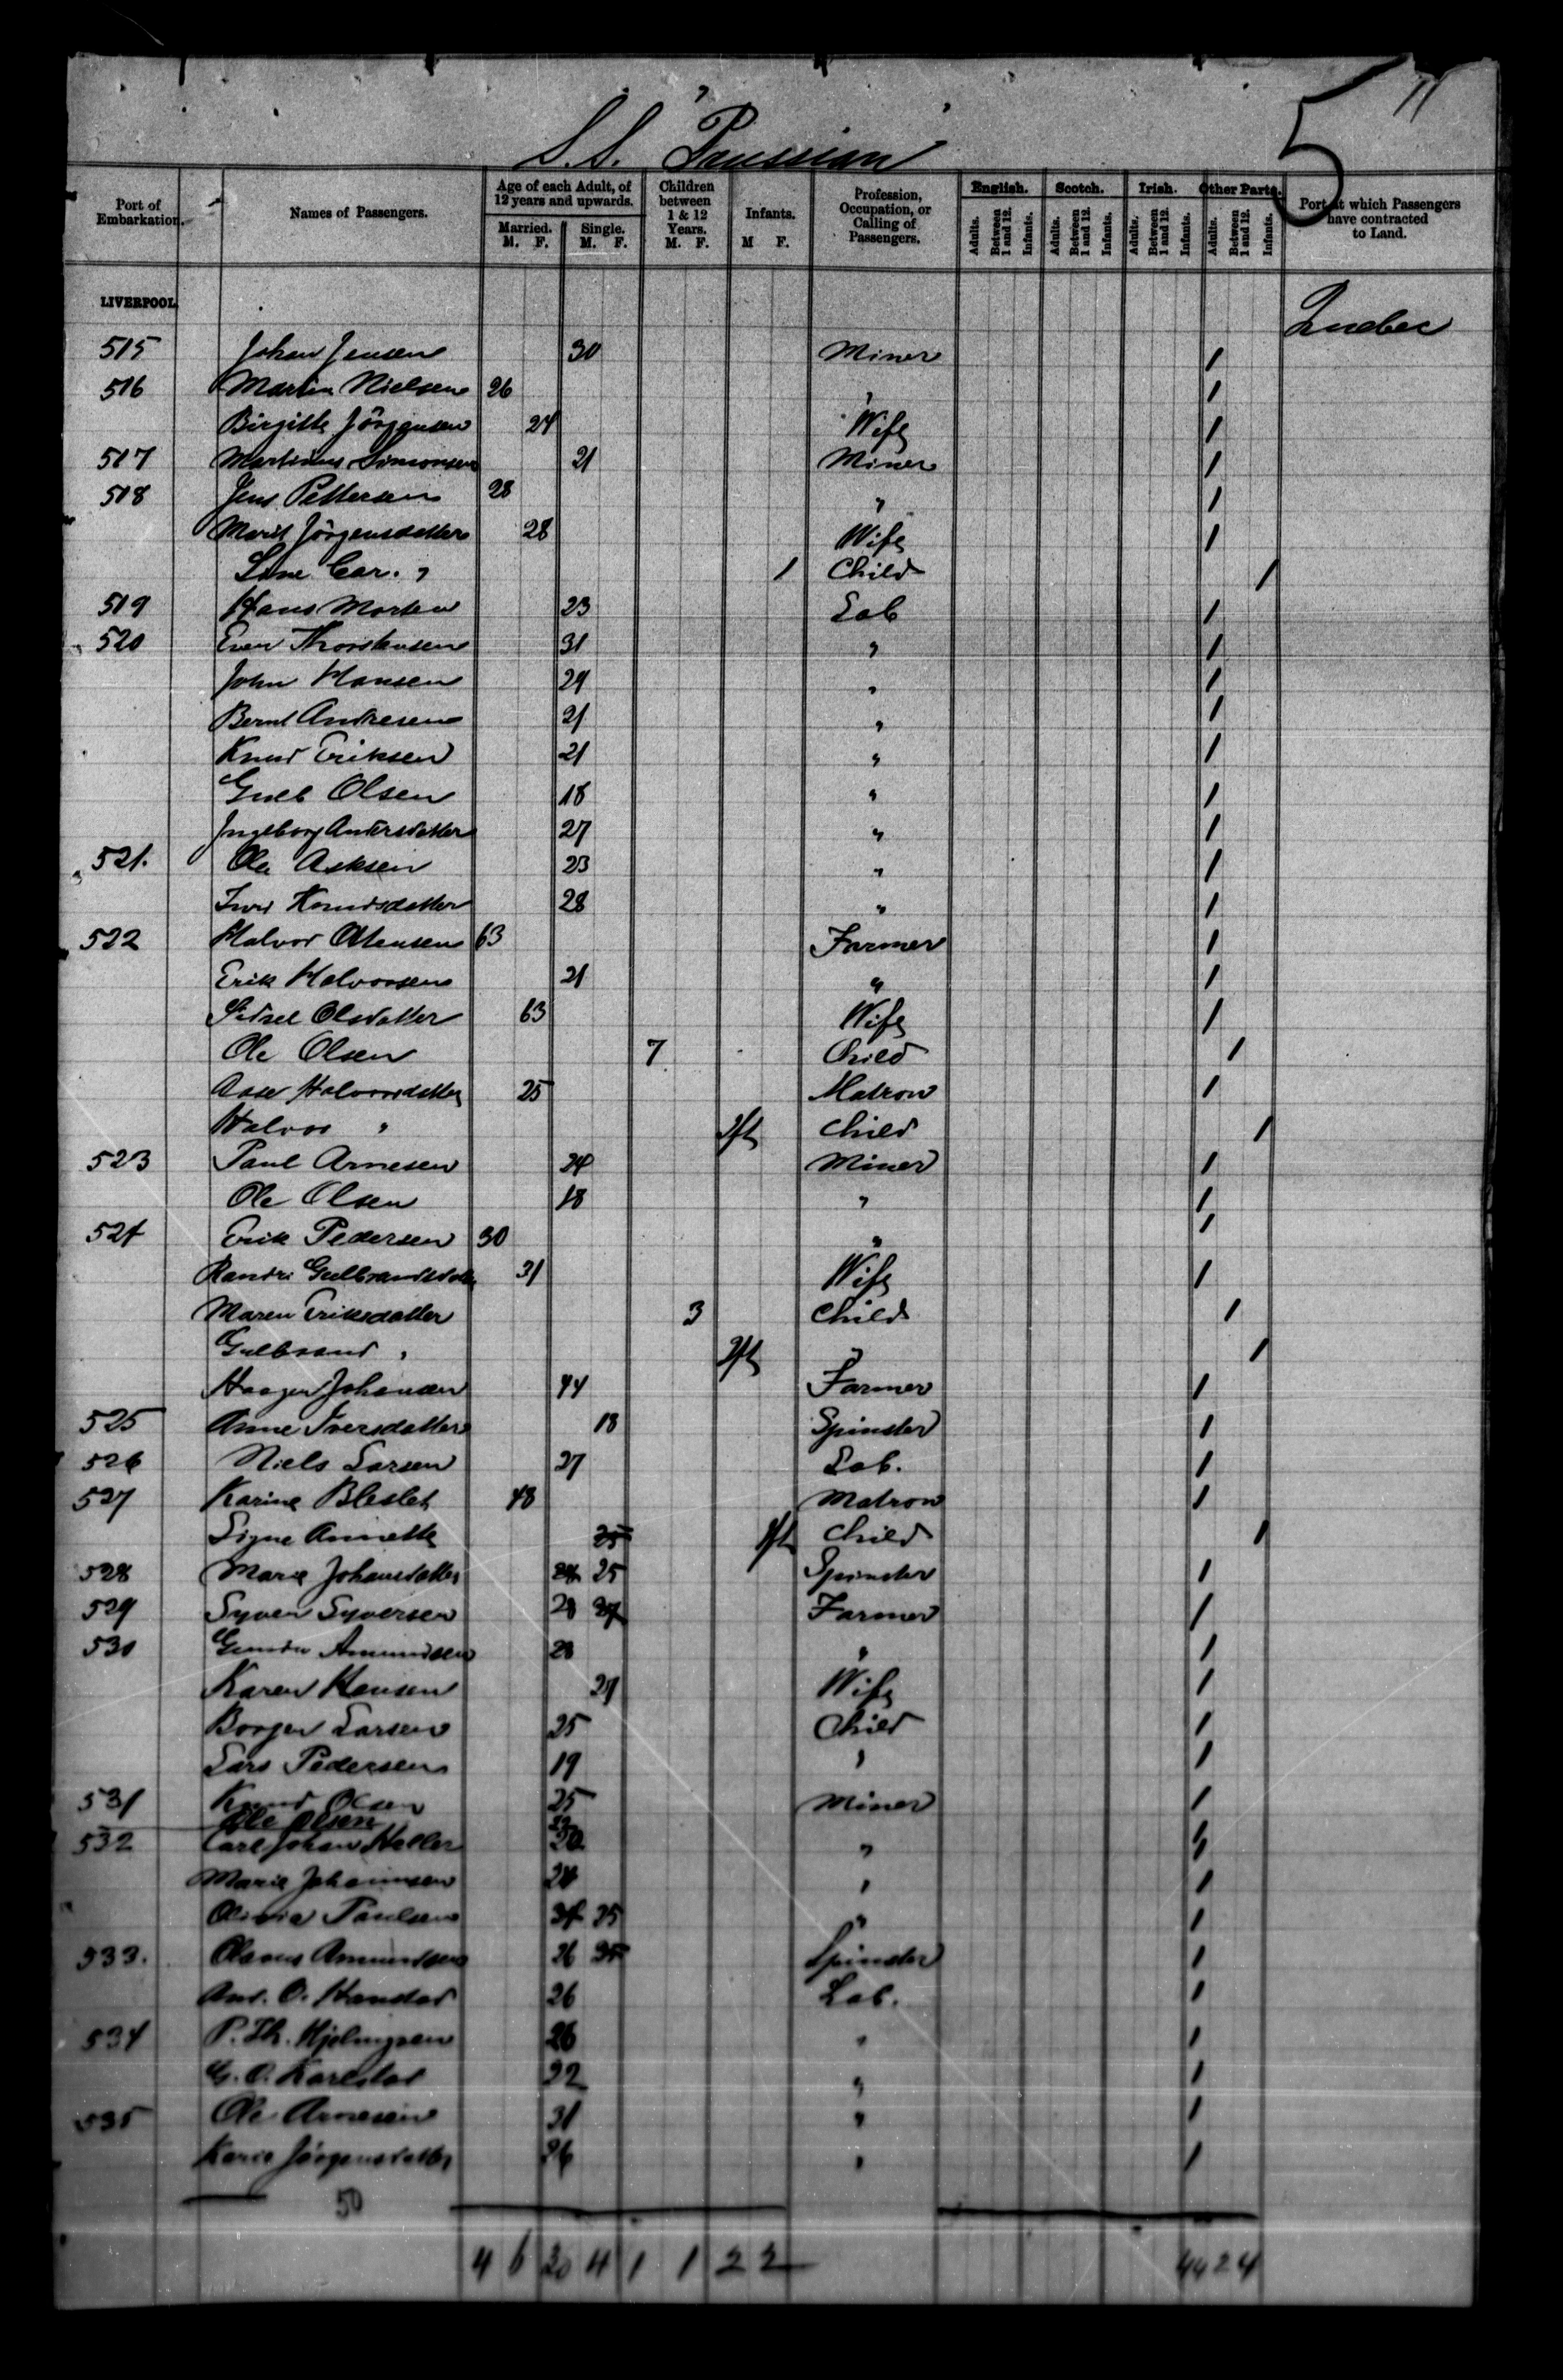 5 11
S.S. "Prussian"
Port of Embarkation. Names of Passengers. Age of each Adult, of 12 years and upwards. Married. M. F. Single. M. F. Children between 1 & 12 Years. M. F. Infants. M F. Profession, Occupation, or Calling of Passengers. English. Adults. Between 1 and 12. Infants. Scotch. Adults. Between 1 and 12. Infants. Irish. Adults. Between 1 and 12. Infants. Other Parts. Adults. Between 1 and 12. Infants. Port at which Passengers have contracted to Land.
LIVERPOOL Quebec
515 Johan Jensen 30 Miner /
516 Martin Nielsen 26 " /
Birgitte Jörgensen 24 Wife /
517 Martinus Simonsen 21 Miner /
518 Jens Pettersen 28 " /
Marit Jörgensdatter 28 Wife /
Car. " / Child /
519 Hans Morten 23 Lab /
520 Even Thorstensen 31 " /
John Hansen 29 " /
Bernt Andresen 21 " /
Knud Eriksen 21 " /
Gulb Olsen 18 " /
Ingeborg Andersdatter 27 " /
521. Ole Asksen 23 " /
Knudsdatter 28 " /
522 Halvor 63 Farmer /
Erik Halvorsen 21 " /
Sidsel Olsdatter 63 Wife /
Ole Olsen 7 Child /
Aase Halvorsdatter 25 Matron /
Halvor " Inft Child /
523 Paul Arnesen 24 Miner /
Ole Olsen 18 " /
524 Erik Pedersen 30 " /
Randi Gulbrandsdatter 31 Wife /
Maren Eriksdatter 3 Child /
Gulbrand " Inft " /
Haagen Johansen 44 Farmer /
525 Anne Iversdatter 18 Spinster /
526 Niels Larsen 27 Lab. /
527 Karine Bleslet 48 Matron /
Signe Annette 25 Inft Child /
528 Marie Johansdatter 25 Spinster /
529 Syver Syversen 28 27 Farmer /
530 Amundsen 28 " /
Karen Hansen 27 Wife /
Borger Larsen 25 Child /
Lars Pedersen 19 " /
531 Knud Olsen 25 Miner /
Ole Olsen 22 /
532 Carl Johan Haller 30 " /
Marie Johannsen 24 " /
Olivia Paulsen 25 " /
533. Olaves Amundsen 26 Spinster /
And. O. Hanstad 26 Lab. /
534 P. Th. 26 " /
G. O. Karlstad 22 " /
535 Ole Arnesen 31 " /
Karie Jörgensdatter 26 " /
50
4 6 30 4 1 1 2 2 44 2 4